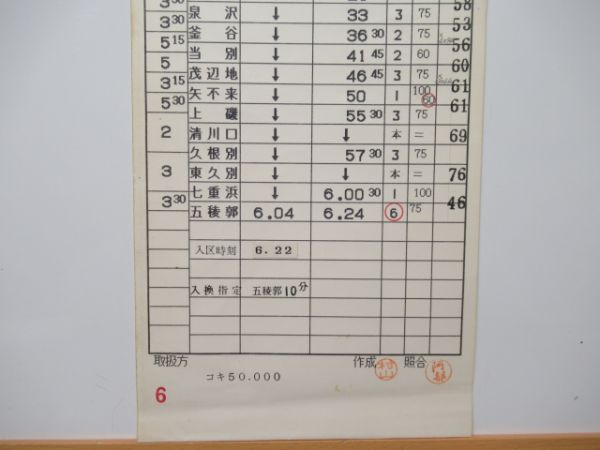 3 30 泉沢 ↓ 33 3 75 58
5 15 釜谷 ↓ 36 30 2 75 53
5 当別 ↓ 41 45 2 60 56
3 15 茂辺地 ↓ 46 45 3 75 60
5 30 矢不来 ↓ 50 1 100 60 61
上磯 ↓ 55 30 3 75 61
2 清川口 ↓ ↓ 本 =
久根別 ↓ 57 30 3 75 69
3 東久別 ↓ ↓ 本 =
3 30 七重浜 ↓ 6.00 30 1 100 76
五稜郭 6.04 6.24 6 75 46
入区時刻 6.22
入換指定 五稜郭10分
取扱方 作成 村山 照合 阿部
コキ50.000
6